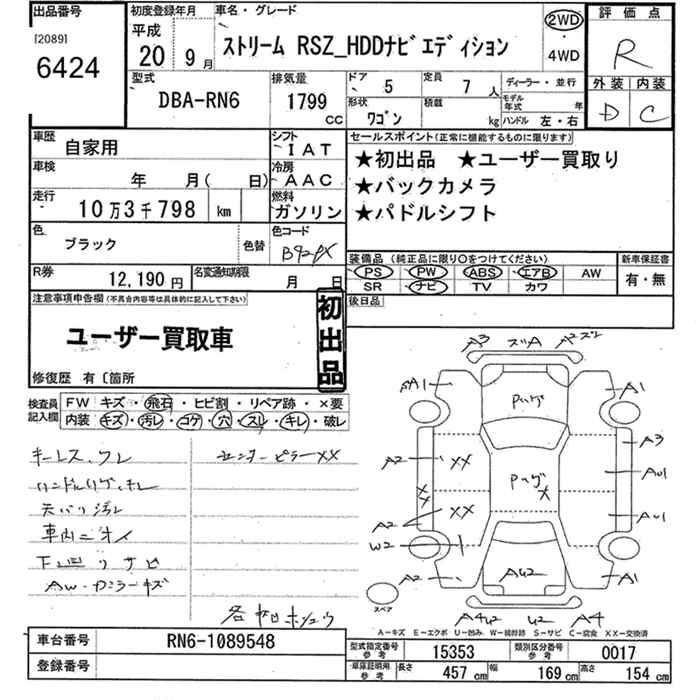 出品番号
[2089]
6424
初度登録年月
平成
20 9月
車名・グレード
ストリーム RSZ_HDDナビエディション
2WD
・
4WD
評価点
R
外装 内装
D C
型式
DBA-RN6
排気量
1799
CC
ドア
5
定員
7 人
ディーラー・並行
形状
ワゴン
積載
kg
モデル
年式
年
ハンドル 左・右
車歴
自家用
シフト
IAT
車検
年 月( 日)
冷房
AAC
走行
10万3千798 km
燃料
ガソリン
色
ブラック
色替
色コード
B92PX
R券
12,190 円
名変通知期限
月 日
セールスポイント(正常に機能するものに限ります)
★初出品 ★ユーザー買取り
★バックカメラ
★パドルシフト
装備品 (純正品に限り〇をつけてください)
PS PW ABS エアB AW
SR ナビ TV カワ
新車保証書
有・無
後日品
注意事項申告欄(不具合内容等は具体的に記入して下さい)
ユーザー買取車
初出品
修復歴 有〔箇所
検査員
記入欄
FW キズ・飛石・ヒビ割・リペア跡・×要
内装 キズ・汚レ・コゲ・穴・スレ・キレ・破レ
キーレス、ワレ
センターピラーXX
ハンドル
天バリ汚レ
車内ニオイ
下回りサビ
AW・カラーキズ
A3 ズリA A2ズリ
A1 A1
Pハゲ
A2 XX A3
Pハゲ X
AU1
XX
XX
A2 AU1
W2
A2 AU2 A1
スペア
A4U2 U2 A4
A−キズ E−エクボ U−凹み W−補修跡 S−サビ C−腐食 XX−交換済
車台番号
RN6-1089548
登録番号
型式指定番号
参考
15353
類別区分番号
参考
0017
車庫証明用
参考
長さ 457 cm 幅 169 cm 高さ 154 cm